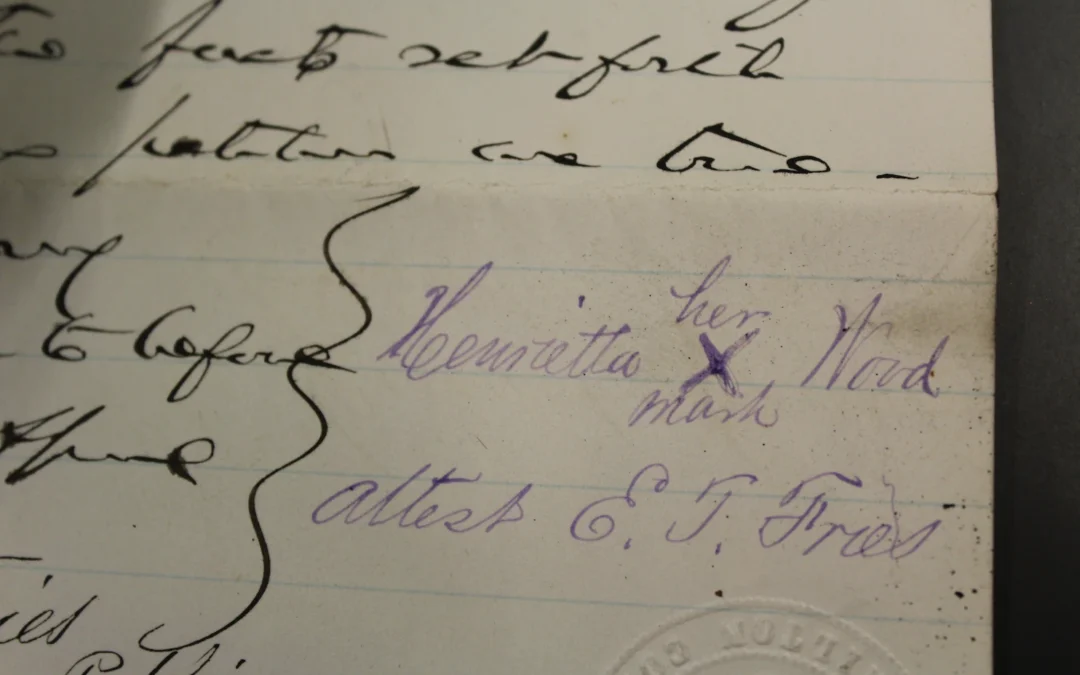 facts set forth
petition are true -
to before
her
Henrietta X Wood
mark
April
attest E. T. Fries